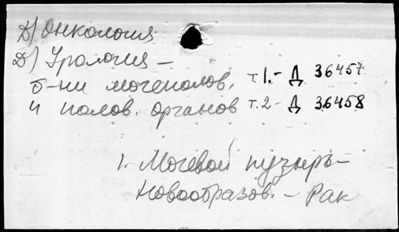 Д/ Онкология
Д/ Урология –
б-ни мочеполов. т 1.- Д 36457
и полов. органов т.2- Д 36458
1. Мочевой пузырь–
Новообразов. – Рак